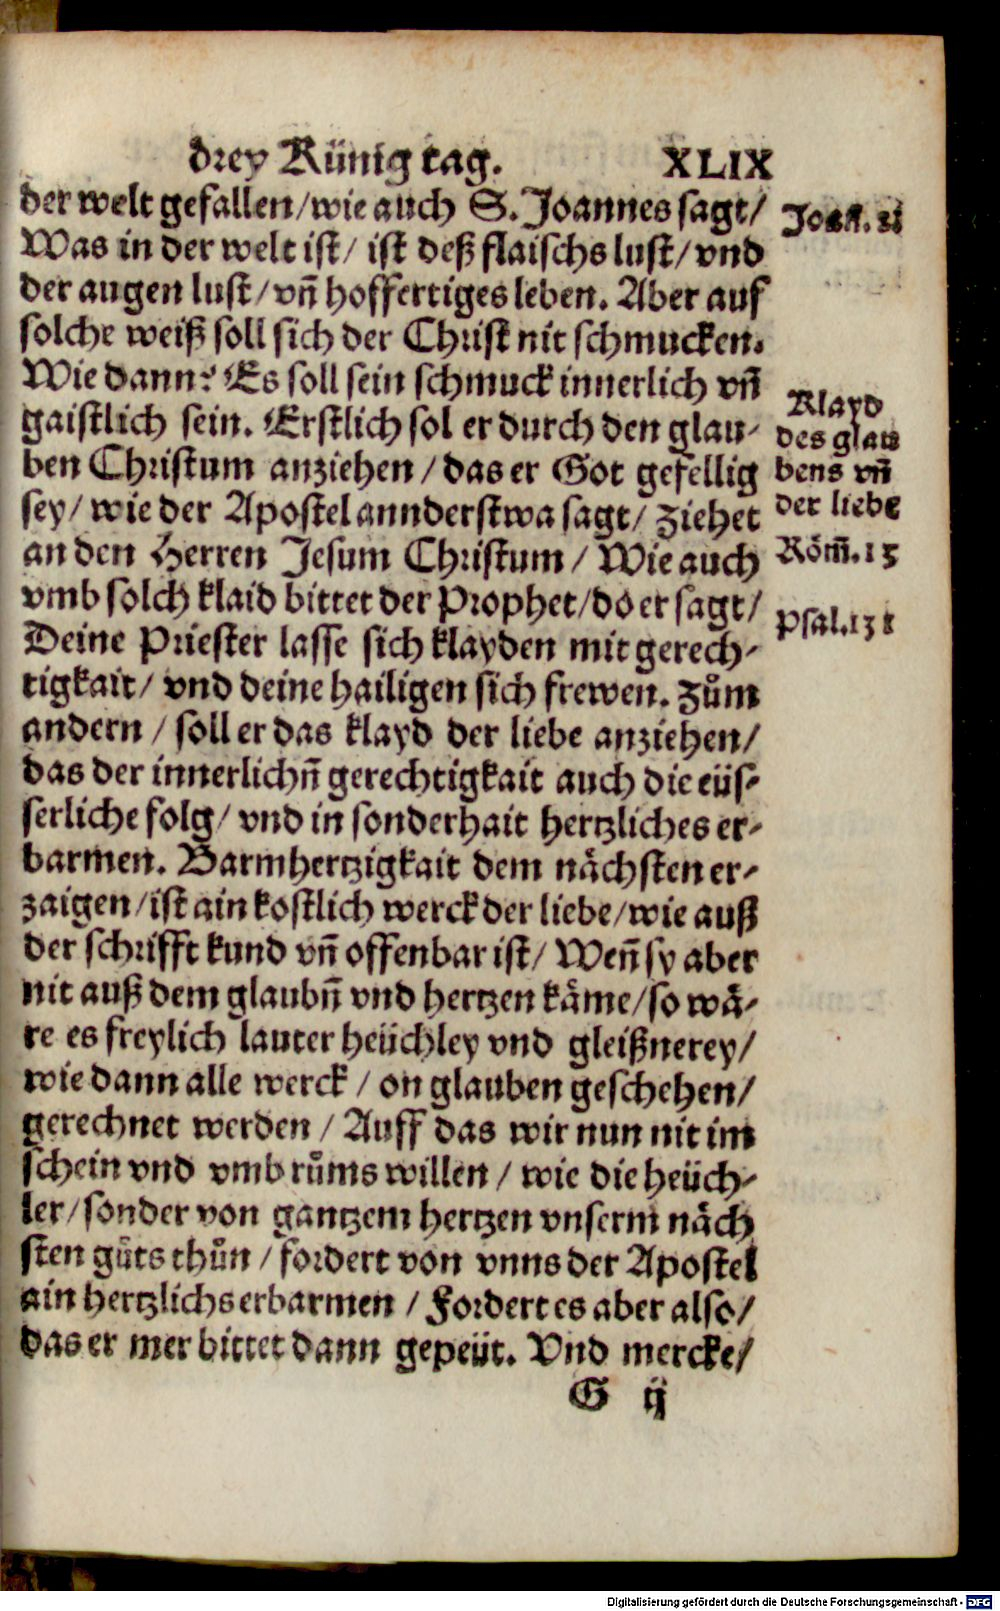 drey Künig tag. XLIX
der welt gefallen/wie auch S. Joannes sagt/
Was in der welt ist/ ist deß flaischs lust/ vnd
der augen lust/ vñ hoffertiges leben. Aber auf
solche weiß soll sich der Christ nit schmucken.
Wie dann? Es soll sein schmuck innerlich vñ
gaistlich sein. Erstlich sol er durch den glau-
ben Christum anziehen/ das er Got gefellig
sey/ wie der Apostel annderstwa sagt/ Ziehet
an den Herren Jesum Christum/ Wie auch
vmb solch klaid bittet der Prophet/ do er sagt/
Deine Priester lasse sich klayden mit gerech-
tigkait/ vnd deine hailigen sich frewen. Zům
andern/ soll er das klayd der liebe anziehen/
das der innerlichñ gerechtigkait auch die eüs-
serliche folg/ vnd in sonderhait hertzliches er-
barmen. Barmhertzigkait dem nächsten er-
zaigen/ist ain kostlich werck der liebe/wie auß
der schrifft kund vñ offenbar ist/ Weñ sy aber
nit auß dem glaubñ vnd hertzen käme/so wä-
re es freylich lauter heüchley vnd gleißnerey/
wie dann alle werck/ on glauben geschehen/
gerechnet werden/ Auff das wir nun nit im
schein vnd vmb růms willen/ wie die heüch-
ler/sonder von gantzem hertzen vnserm näch
sten gůts thůn/ fordert von vnns der Apostel
ain hertzlichs erbarmen/ Fordert es aber also/
das er mer bittet dann gepeüt. Vnd mercke/
G ij
Joañ. ii
Klayd
des glau
bens vñ
der liebe
Röm̃. 13
Psal.131
Digitalisierung gefördert durch die Deutsche Forschungsgemeinschaft - DFG